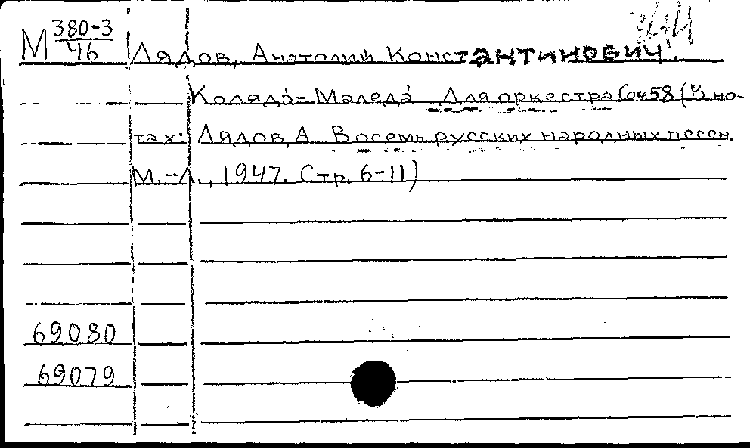 М 380-3/46 Лядов, Анатолий Константинович.
Коляда-Маледа. Для оркестра (ор 58 (В но-
тах: Лядов, А. Восемь русских народных песен.
М.-Л., 1947. Стр. 6-11)
69080
69079